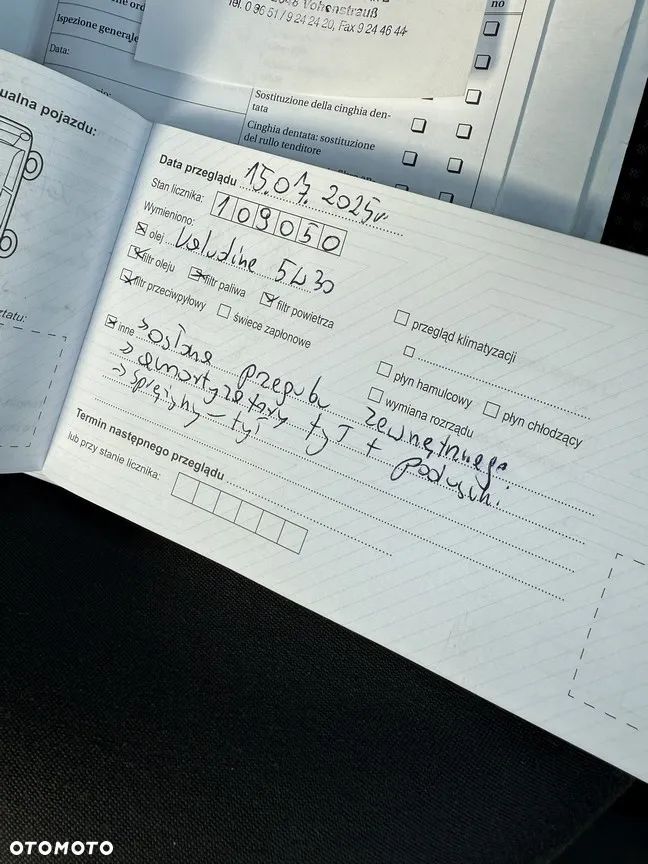 no
Vohenstrauß
Tel. 0 96 51 / 9 24 24 20, Fax 9 24 46 44
Ispezione generale
Data:
Sostituzione della cinghia den-
tata
Cinghia dentata: sostituzione
del rullo tenditore
ualna pojazdu:
Data przeglądu 15.07.2025r
Stan licznika: 109050
Wymieniono:
olej Valudine 5W30
filtr oleju filtr paliwa filtr powietrza
filtr przeciwpyłowy świece zapłonowe
przegląd klimatyzacji
płyn hamulcowy płyn chłodzący
wymiana rozrządu
inne → osłona przegubu zewnętrznego.
→ amortyzatory tył + poduszk.
→ sprężyny – tył
Termin następnego przeglądu
lub przy stanie licznika:
OTOMOTO